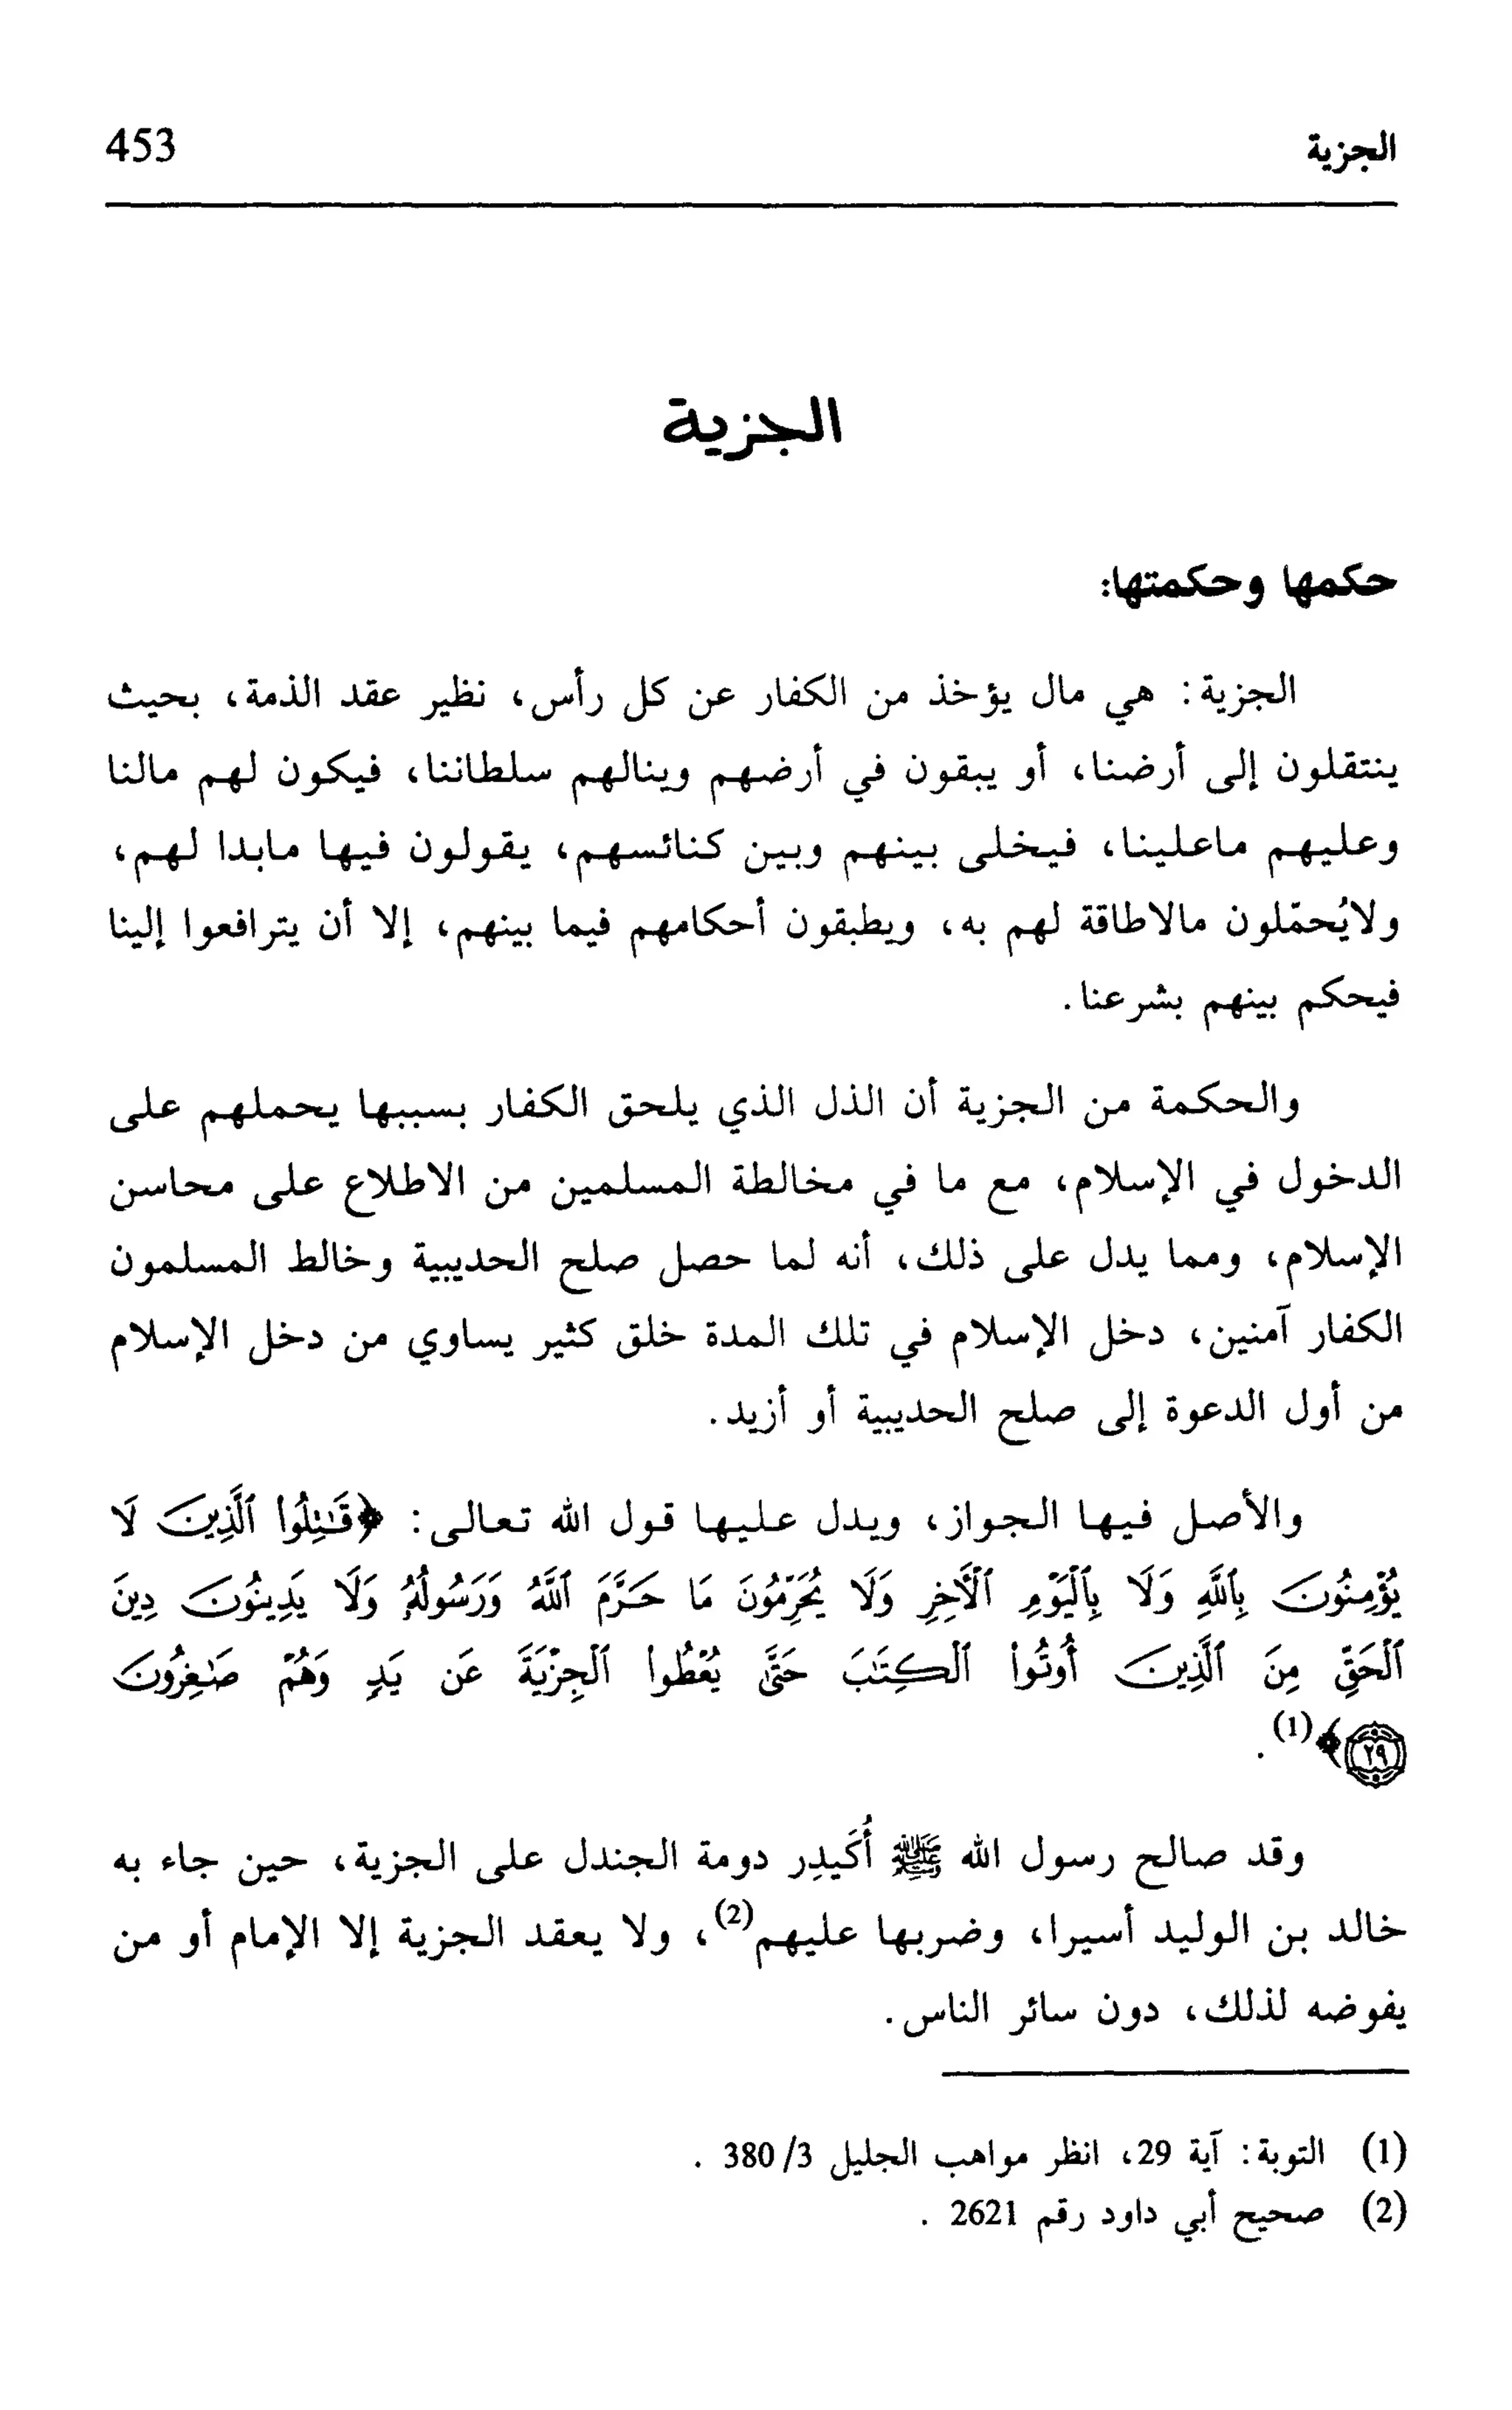 الجزية 453
الجزية
حكمها وحكمتها:
الجزية: هي مال يؤخذ من الكفار عن كل رأس، نظير عقد الذمة، بحيث
ينتقلون إلى أرضنا، أو يبقون في أرضهم وينالهم سلطاننا، فيكون لهم مالنا
وعليهم ماعلينا، فيخلى بينهم وبين كنائسهم، يقولون فيها مابدا لهم،
ولايُحمّلون مالاطاقة لهم به، ويطبقون أحكامهم فيما بينهم، إلا أن يترافعوا إلينا
فيحكم بينهم بشرعنا.
والحكمة من الجزية أن الذل الذي يلحق الكفار بسببها يحملهم على
الدخول في الإسلام، مع ما في مخالطة المسلمين من الاطلاع على محاسن
الإسلام، ومما يدل على ذلك، أنه لما حصل صلح الحديبية وخالط المسلمون
الكفار آمنين، دخل الإسلام في تلك المدة خلق كثير يساوي من دخل الإسلام
من أول الدعوة إلى صلح الحديبية أو أزيد.
والأصل فيها الجواز، ويدل عليها قول الله تعالى: ﴿قَٰتِلُوا ٱلَّذِينَ لَا
يُؤْمِنُونَ بِٱللَّهِ وَلَا بِٱلْيَوْمِ ٱلْآخِرِ وَلَا يُحَرِّمُونَ مَا حَرَّمَ ٱللَّهُ وَرَسُولُهُ وَلَا يَدِينُونَ دِينَ
ٱلْحَقِّ مِنَ ٱلَّذِينَ أُوتُوا ٱلْكِتَٰبَ حَتَّىٰ يُعْطُوا ٱلْجِزْيَةَ عَن يَدٍ وَهُمْ صَٰغِرُونَ
٢٩﴾(1).
وقد صالح رسول الله ﷺ أُكَيدِر دومة الجندل على الجزية، حين جاء به
خالد بن الوليد أسيرا، وضربها عليهم(2)، ولا يعقد الجزية إلا الإمام أو من
يفوضه لذلك، دون سائر الناس.
(1) التوبة: آية 29، انظر مواهب الجليل 3/ 380 .
(2) صحيح أبي داود رقم 2621 .